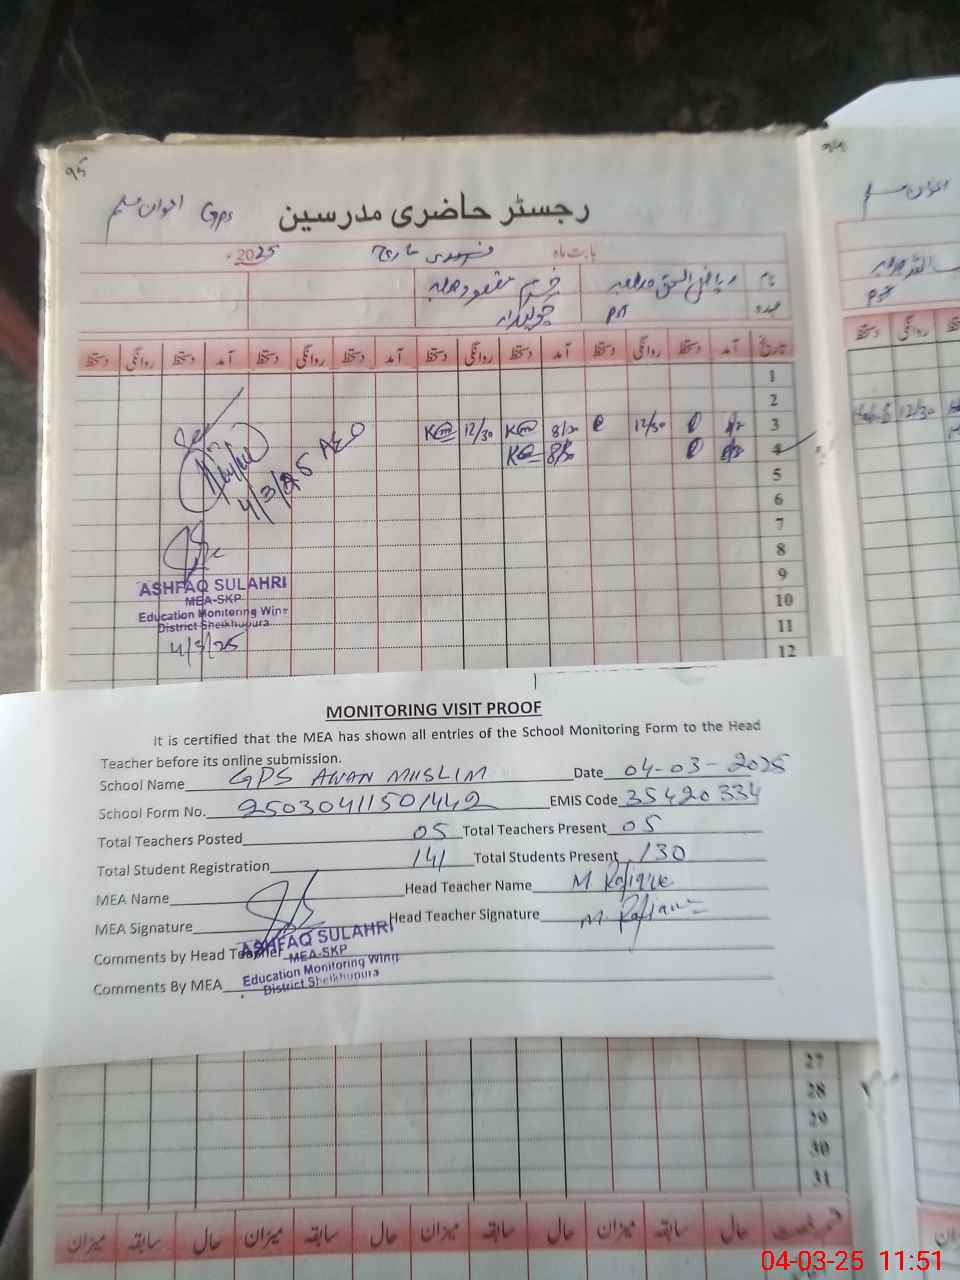 95
رجسٹر حاضری مدرسین Gps اعوان مسلم
بابت ماہ مارچ 2025ء
نام
عہدہ PST چوکیدار
تاریخ آمد دستخط روانگی دستخط آمد دستخط روانگی دستخط آمد دستخط روانگی دستخط آمد دستخط روانگی دستخط
1
2
3 12/30 8/30 12/30
4 8/30
5
6
7
8
9
10
11
12
4/3/25 AEO
ASHFAQ SULAHRI
MEA-SKP
Education Monitoring Wing
District Sheikhupura
4/3/25
MONITORING VISIT PROOF
It is certified that the MEA has shown all entries of the School Monitoring Form to the Head
Teacher before its online submission.
School Name GPS AWAN MUSLIM Date 04-03-2025
School Form No. 25030411501442 EMIS Code 35420334
Total Teachers Posted 05 Total Teachers Present 05
Total Student Registration 141 Total Students Present 130
MEA Name Head Teacher Name M. Rafique
MEA Signature Head Teacher Signature M. Rafique
Comments by Head Teacher
ASHFAQ SULAHRI
MEA-SKP
Education Monitoring Wing
District Sheikhupura
Comments By MEA
27
28
29
30
31
حال سابقہ میزان حال سابقہ میزان حال سابقہ میزان حال سابقہ میزان
04-03-25 11:51